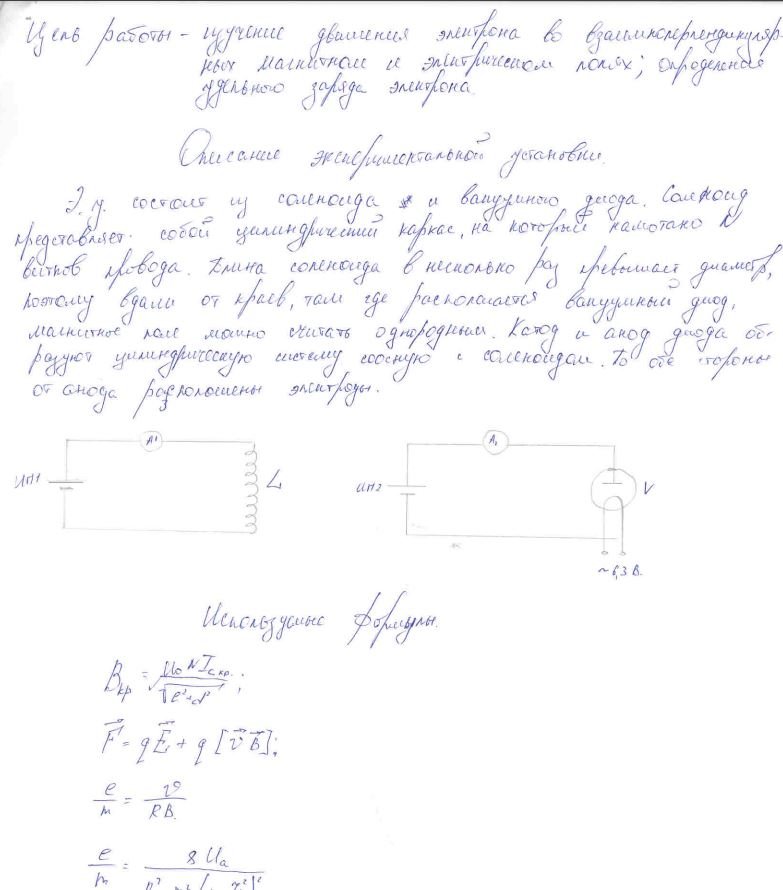 Цель работы - изучение движения электрона во взаимноперпендикуляр-
ных магнитном и электрическом полях; определение
удельного заряда электрона.
Описание экспериментальной установки.
Э.у. состоит из соленоида и вакуумного диода. Соленоид
представляет собой цилиндрический каркас, на который намотано N
витков провода. Длина соленоида в несколько раз превышает диаметр,
поэтому вдали от краев, там где располагается вакуумный диод,
магнитное поле можно считать однородным. Катод и анод диода об-
разуют цилиндрическую систему соосную с соленоидом. По обе стороны
от анода расположены электроды.
А1
ИП1
L
А1
ИП2
V
~6,3 В.
Используемые формулы.
Bкр = μ₀NIс кр. / √(l²+d²);
F⃗ = qE⃗ + q[v⃗B⃗];
e/m = v/RB.
e/m = 8Ua